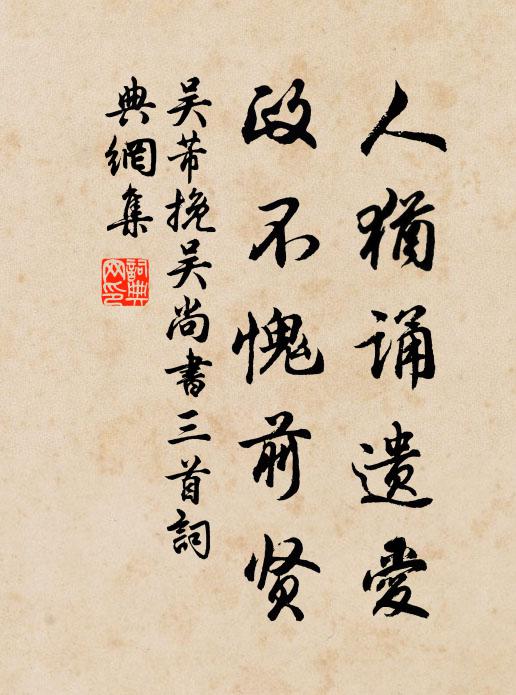 人犹诵遗爱
政不愧前贤
吴芾挽吴尚書三首詞
典網集
詞典网印